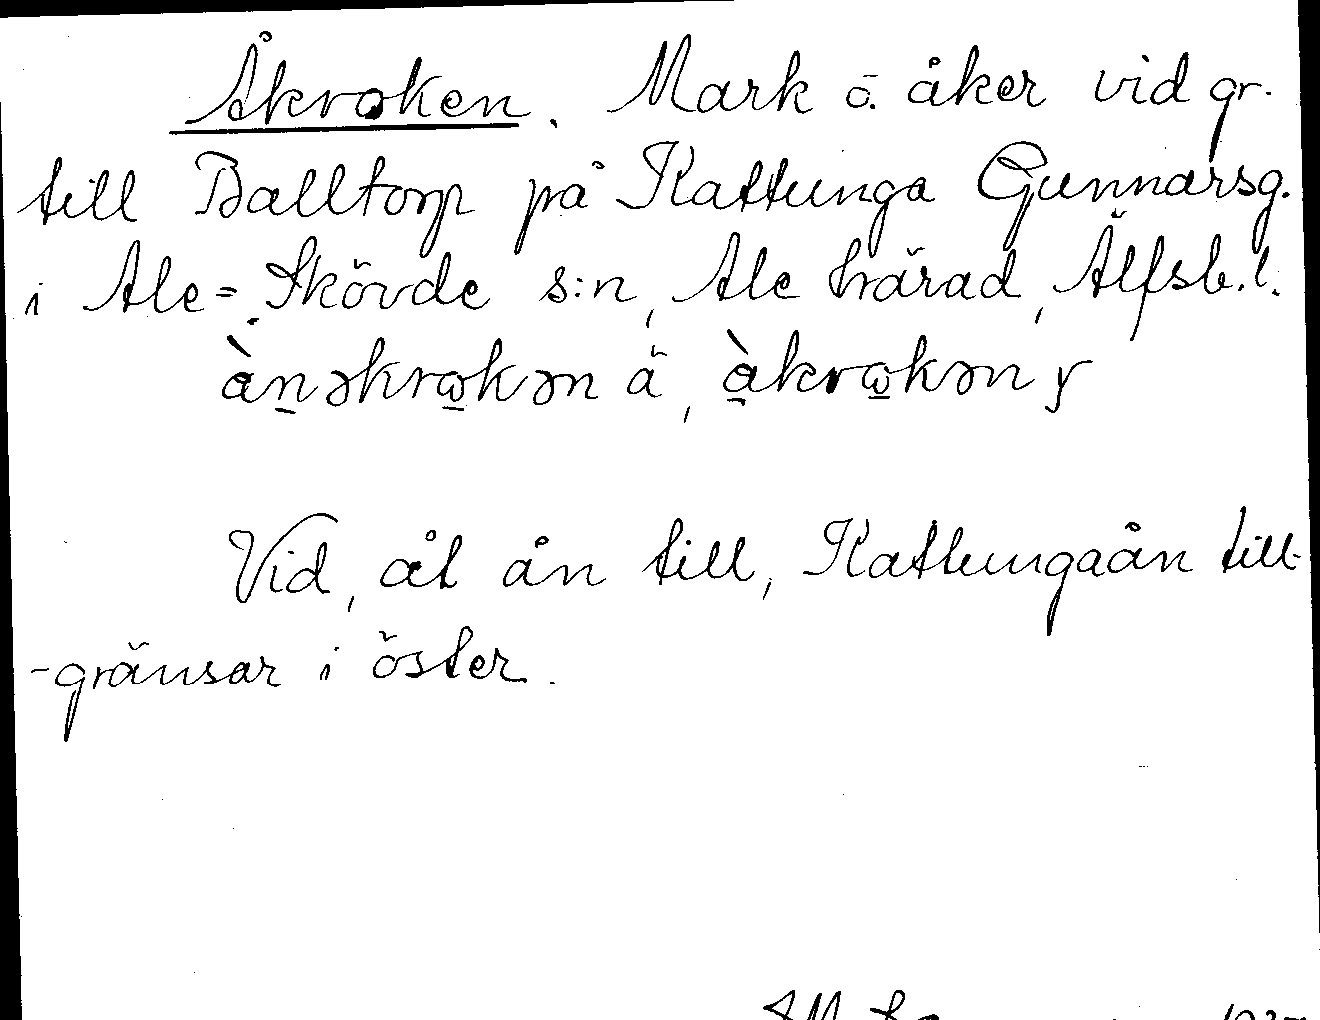 Åkroken. Mark o. åker vid gr.
till Balltorp på Kattunga Gunnarsg.
i Ale-Skövde s:n, Ale härad, Älfsb. l.
ànəkrωkən ä, àkrωkən y
Vid, åt ån till, Kattungaån till-
-gränsar i öster.